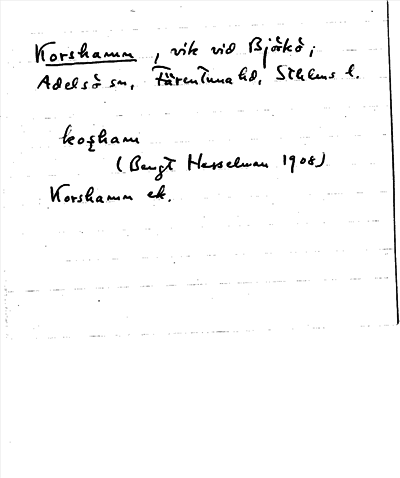 Korshamn, vik vid Björkö;
Adelsö sn, Färentuna hd, Sthlms l.
koʂham
(Bengt Hesselman 1908)
Korshamn ek.